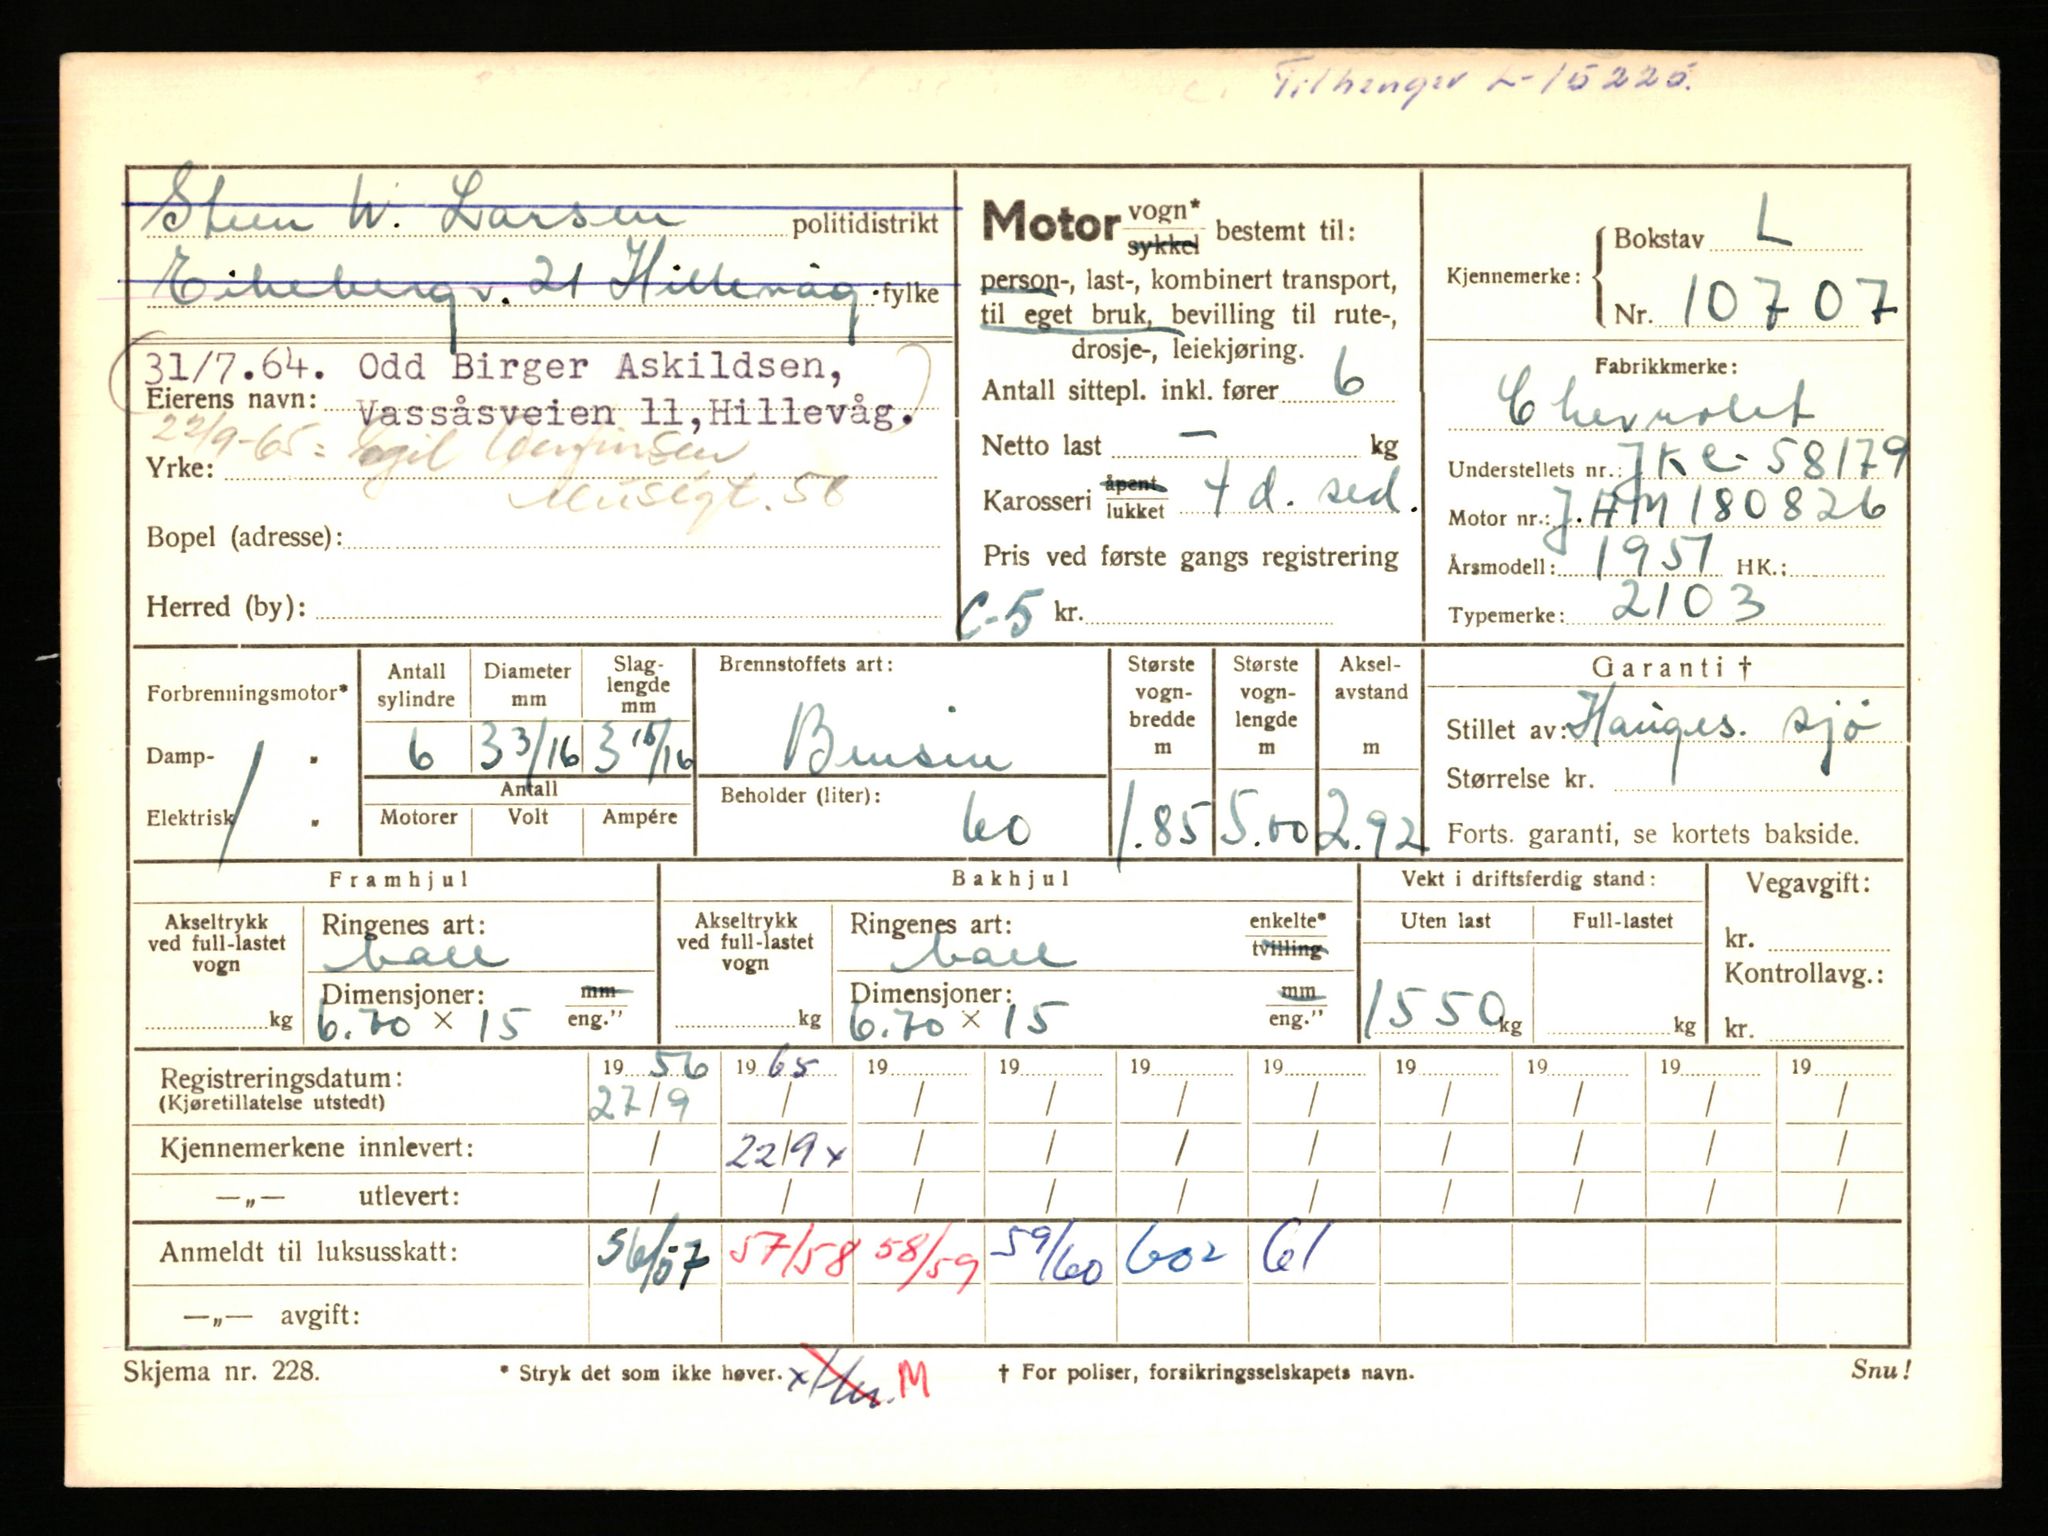 Tilhenger L-15225.
Steen W. Larsen politidistrikt
Eikebergv. 21 Hillevåg fylke
31/7.64. Odd Birger Askildsen,
Eierens navn: Vassåsveien 11, Hillevåg.
22/9-65: Egil
Yrke:
Musegt. 56
Bopel (adresse):
Herred (by):
Motor vogn* sykkel bestemt til:
person-, last-, kombinert transport,
til eget bruk, bevilling til rute-,
drosje-, leiekjøring.
Antall sittepl. inkl. fører 6
Netto last — kg
Karosseri åpent lukket 4 d. sed.
Pris ved første gangs registrering
C-5 kr.
Kjennemerke: Bokstav L
Nr. 10707
Fabrikkmerke:
Chevrolet
Understellets nr.: JKC-58179
Motor nr.: J.HM180826
Årsmodell: 1951 HK.:
Typemerke: 2103
Forbrenningsmotor*
Damp- "
Elektrisk "
Antall sylindre 6
Diameter mm 3 3/16
Slag-lengde mm 3 15/16
Antall
Motorer Volt Ampére
Brennstoffets art:
Bensin
Beholder (liter):
60
Største vogn-bredde m 1.85
Største vogn-lengde m 5.00
Aksel-avstand m 2.92
Garanti †
Stillet av: Hauges. sjø
Størrelse kr.
Forts. garanti, se kortets bakside.
Framhjul
Akseltrykk ved full-lastet vogn
kg
Ringenes art:
ball
Dimensjoner: mm
6.70 × 15 eng."
Bakhjul
Akseltrykk ved full-lastet vogn
kg
Ringenes art: enkelte*
ball tvilling
Dimensjoner: mm
6.70 × 15 eng."
Vekt i driftsferdig stand:
Uten last Full-lastet
1550 kg kg
Vegavgift:
kr.
Kontrollavg.:
kr.
Registreringsdatum: 19 56 19 65 19 19 19 19 19 19 19 19
(Kjøretillatelse utstedt) 27/9 / / / / / / / / /
Kjennemerkene innlevert: / 22/9 x / / / / / / / /
—„— utlevert: / / / / / / / / / /
Anmeldt til luksusskatt: 56/57 57/58 58/59 59/60 602 61
—„— avgift:
Skjema nr. 228. * Stryk det som ikke høver. x M † For poliser, forsikringsselskapets navn. Snu!